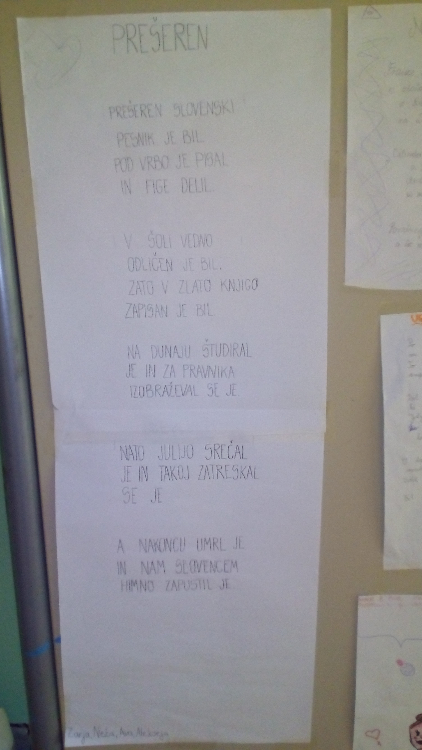 PREŠEREN
PREŠEREN SLOVENSKI
PESNIK JE BIL
POD VRBO JE PISAL
IN FIGE DELIL.
V ŠOLI VEDNO
ODLIČEN JE BIL,
ZATO V ZLATO KNJIGO
ZAPISAN JE BIL
NA DUNAJU ŠTUDIRAL
JE IN ZA PRAVNIKA
IZOBRAŽEVAL SE JE.
NATO JULIJO SREČAL
JE IN TAKOJ ZATRESKAL
SE JE
A NAKONCU UMRL JE
IN NAM SLOVENCEM
HIMNO ZAPUSTIL JE.